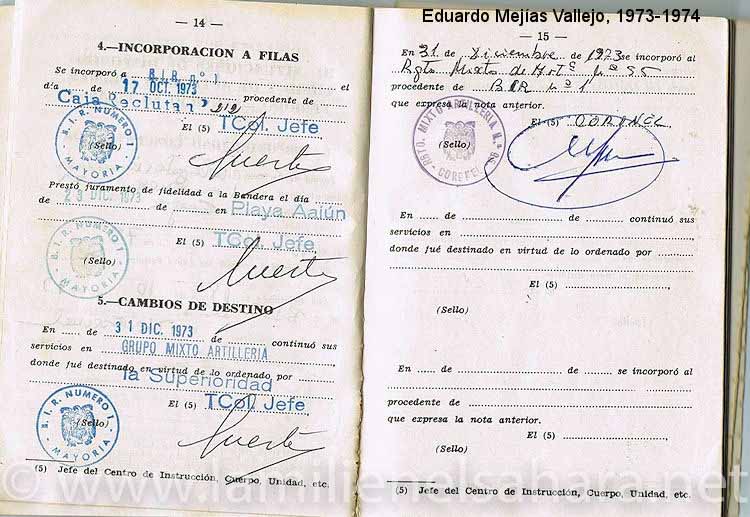 Eduardo Mejías Vallejo, 1973-1974
— 14 —
4.—INCORPORACION A FILAS
Se incorporó a B.I.R. nº 1 el
día 17 OCT. 1973 procedente de
Caja Recluta nº 212
El (5) TCol. Jefe
(Sello)
B. I. R. NUMERO 1
MAYORIA
Prestó juramento de fidelidad a la Bandera el día
de 23 DIC. 1973 de en Playa Aaiún
El (5) TCol. Jefe
(Sello)
B. I. R. NUMERO 1
MAYORIA
5.—CAMBIOS DE DESTINO
En de 31 DIC. 1973 de continuó sus
servicios en GRUPO MIXTO ARTILLERIA
donde fué destinado en virtud de lo ordenado por
la Superioridad
El (5) TCol. Jefe
(Sello)
B. I. R. NUMERO 1
MAYORIA
(5) Jefe del Centro de Instrucción, Cuerpo, Unidad, etc.
— 15 —
En 31 de Diciembre de 1973 se incorporó al
Rgto Mixto de Artª nº 95
procedente de BIR nº 1
que expresa la nota anterior.
El (5) CORONEL
(Sello)
RGTO. MIXTO ARTILLERIA N.º 95
CORONEL
En de de continuó sus
servicios en
donde fué destinado en virtud de lo ordenado por
El (5)
(Sello)
En de de se incorporó al
procedente de
que expresa la nota anterior.
El (5)
(Sello)
(5) Jefe del Centro de Instrucción, Cuerpo, Unidad, etc.
www.lamilienelsahara.net